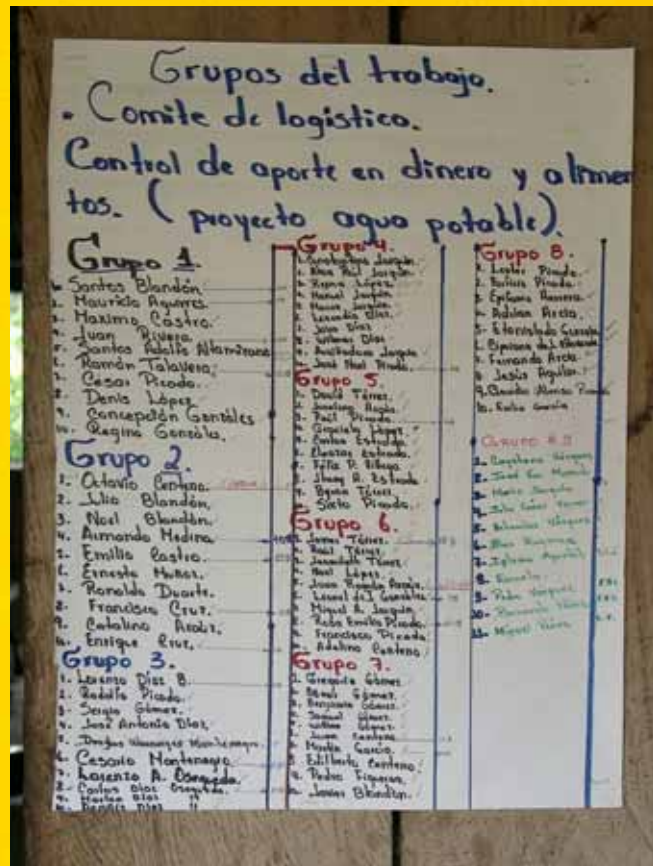 Grupos del trabajo.
. Comite de logistico.
Control de aporte en dinero y alimen
tos. ( proyecto agua potable).
Grupo 1.
1. Santos Blandón
2. Mauricio Aguirres
3. Maximo Castro.
4. Juan Rivera
5. Santos Adolfo Altamirano
6. Ramón Talavera.
7. Cesar Picado.
8. Denis López
9. Concepción Gonzáles
10. Regino Gonzáles.
Grupo 2.
1. Octavio Centeno.
2. Julio Blandón,
3. Noel Blandón.
4. Armando Medina
5. Emilio Castro.
6. Ernesto Muñoz.
7. Ronaldo Duarte.
8. Francisco Cruz.
9. Catalino Arauz.
10. Enrique Cruz.
Grupo 3.
1. Lorenzo Díaz B.
2. Rodolfo Picado.
3. Sergio Gómez.
4. José Antonio Díaz
5. Montenegro.
6. Cesario Montenegro
7. Lorenzo A. Osegueda.
8. Carlos Díaz Osegueda.
9. Díaz "
10. Díaz "
Grupo 4.
Jarquín
Raúl Jarquín
López
4. Manuel Jarquín
Jarquín
Leonardo Díaz
7. Julio Díaz
8. Wilmer Díaz
9. Auxiliadora Jarquín
José Noel Picado.
Grupo 5.
1. David Tórrez.
2.
3. Raúl Picado.
4. Graciela López
5. Carlos Estrada.
6. Eleazar Estrada.
7. Félix P.
8. Jhony R. Estrada
9. Byron Tórrez.
Sixto Picado.
Grupo 6.
1. James Tórrez.
2. Raúl Tórrez.
3. Tórrez.
4. Noel López.
5. Juan Ramón Arauz.
6. Leonel de J. González
7. Miguel A. Jarquín
8. Pedro Emilio Picado.
9. Francisco Picado
Adelino Centeno
Grupo 7.
1. Gregorio Gómez
2. Gómez.
3. Benjamín Gómez
4. Samuel Gómez.
5. Gómez.
6. Juan Centeno
7. Martha García.
8. Edilberto Centeno
9. Pedro Figueroa.
Javier Blandón.
Grupo 8.
1. Lester Picado.
2. Picado.
3. Epifanio Herrera.
4. Adrian Arcia.
5. Estanislado
6. Cipriano de J.
7. Fernando Arcia
8. Jesús Aguilar.
9. Claudio Alonso Picado
10. García
Grupo # 9
1- Cayetano Vásquez
2- José
3- Mario
4- Julio César
5- Vásquez
6-
7-
8-
9- Pedro Vásquez
10-
11- Miguel